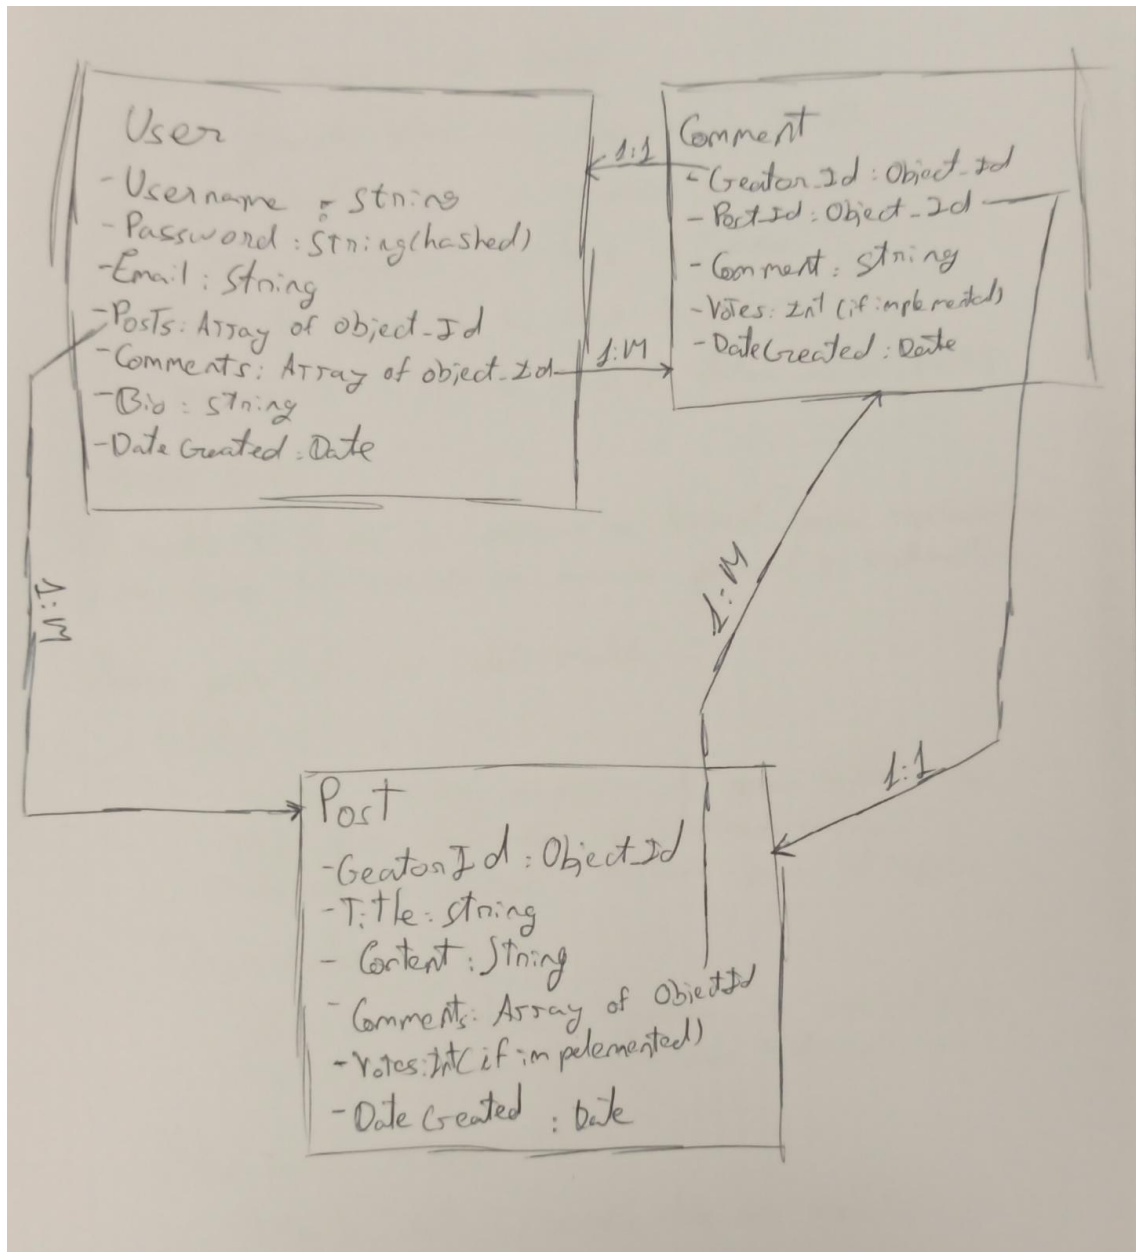 User
- Username : String
- Password : String(hashed)
- Email : String
- Posts : Array of object_Id
- Comments : Array of object_Id
- Bio : String
- Date Created : Date
1:1
1:M
Comment
- Creator_Id : Object_Id
- Post_Id : Object_Id
- Comment : String
- Votes : Int (if implemented)
- DateCreated : Date
1:M
1:M
1:1
Post
- CreatorId : Object_Id
- Title : String
- Content : String
- Comments : Array of ObjectId
- Votes : Int (if impelemented)
- Date Created : Date